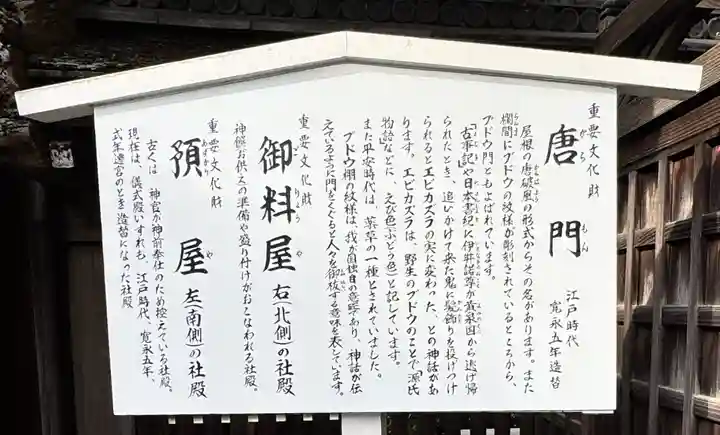 重要文化財
唐門
からもん
江戸時代
寛永五年造替
屋根の唐破風の形式からその名があります。また
欄間にブドウの紋様が彫刻されているところから、
ブドウ門ともよばれています。
「古事記」や日本書紀に伊弉諾尊が黄泉国から逃げ帰
られたとき、追いかけて来た鬼に髪飾りを投げつけ
られるとエビカズラの実に変わった、との神話があ
ります。エビカズラは、野生のブドウのことで「源氏
物語」などに、えび色(ぶどう色)と記しています。
また平安時代は、薬草の一種とされていました。
ブドウ棚の紋様は、我が国独自の意味であり、神話が伝
えているように門をくぐると人々を御祓する意味を表しています。
重要文化財
御料屋
りょうや
右(北側)の社殿
神饌お供えの準備や盛り付けがおこなわれる社殿。
重要文化財
預屋
あずかりや
左(南側)の社殿
古くは、神官が神前奉仕のため控えている社殿。
現在は、儀式殿いずれも、江戸時代、寛永五年、
式年遷宮のとき造替になった社殿